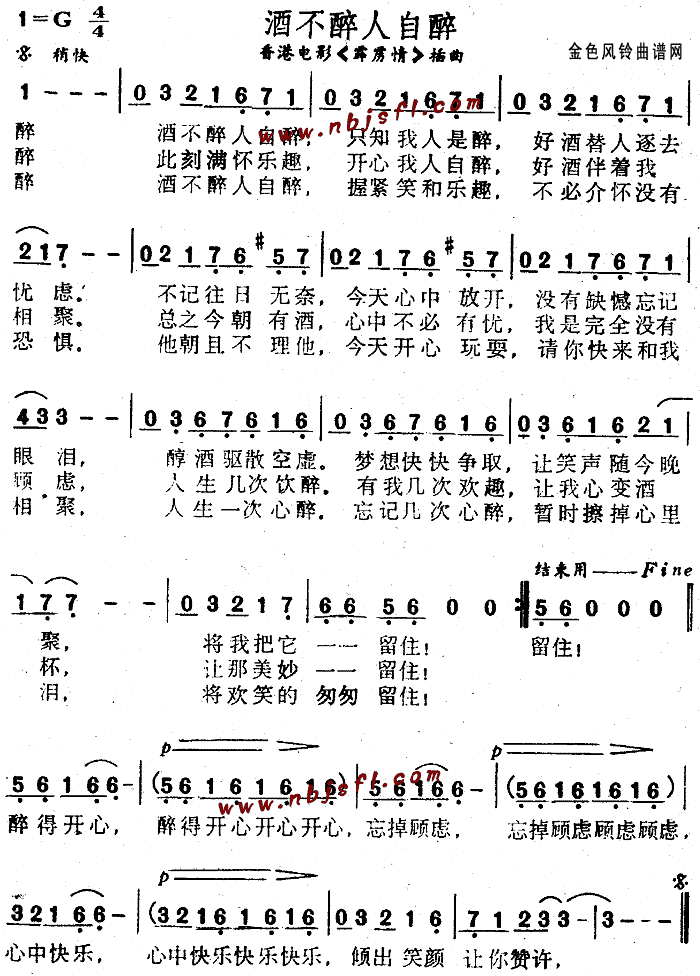 1=G 4/4
酒不醉人自醉
稍快
香港电影《霹雳情》插曲
金色风铃曲谱网
1 - - - | 0 3 2 1 6 7 1 | 0 3 2 1 6 7 1 | 0 3 2 1 6 7 1 |
www.nbjsfl.com
醉 酒不醉人自醉, 只知我人是醉, 好酒替人逐去
醉 此刻满怀乐趣, 开心我人自醉, 好酒伴着我
醉 酒不醉人自醉, 握紧笑和乐趣, 不必介怀没有
2 1 7 - - | 0 2 1 7 6 #5 7 | 0 2 1 7 6 #5 7 | 0 2 1 7 6 7 1 |
忧虑。 不记往日 无奈, 今天心中 放开, 没有缺憾忘记
相聚。 总之今朝 有酒, 心中不必 有忧, 我是完全没有
恐惧。 他朝且不 理他, 今天开心 玩耍, 请你快来和我
4 3 3 - - | 0 3 6 7 6 1 6 | 0 3 6 7 6 1 6 | 0 3 6 1 6 2 1 |
眼泪, 醇酒驱散空虚。 梦想快快争取, 让笑声随今晚
顾虑, 人生几次饮醉。 有我几次欢趣, 让我心变酒
相聚, 人生一次心醉。 忘记几次心醉, 暂时擦掉心里
结束用——Fine
1 7 7 - - | 0 3 2 1 7 | 6 6 5 6 0 0 :‖ 5 6 0 0 0 ‖
聚, 将我把它 一一 留住! 留住!
杯, 让那美妙 一一 留住!
泪, 将欢笑的 匆匆 留住!
p p
5 6 1 6 6 - | (5 6 1 6 1 6 1 6) | 5 6 1 6 6 - | (5 6 1 6 1 6 1 6) |
www.nbjsfl.com
醉得开心, 醉得开心开心开心, 忘掉顾虑, 忘掉顾虑顾虑顾虑,
p
3 2 1 6 6 - | (3 2 1 6 1 6 1 6) | 0 3 2 1 6 | 7 1 2 3 3 - | 3 - - - ‖
心中快乐, 心中快乐快乐快乐, 倾出 笑颜 让你赞许,